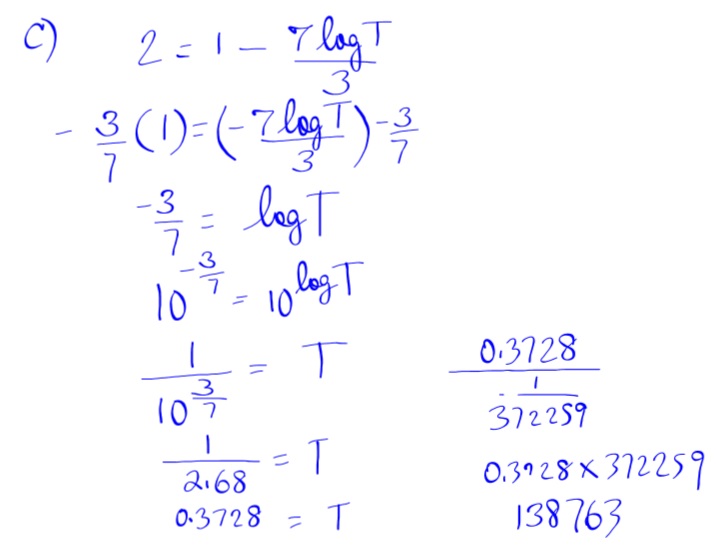 C) 2 = 1 - 7 log T / 3
- 3/7 (1) = (- 7 log T / 3) - 3/7
-3/7 = log T
10^(-3/7) = 10^(log T)
1 / 10^(3/7) = T
1 / 2.68 = T
0.3728 = T
0.3728 / (1 / 372259)
0.3728 × 372259
138763